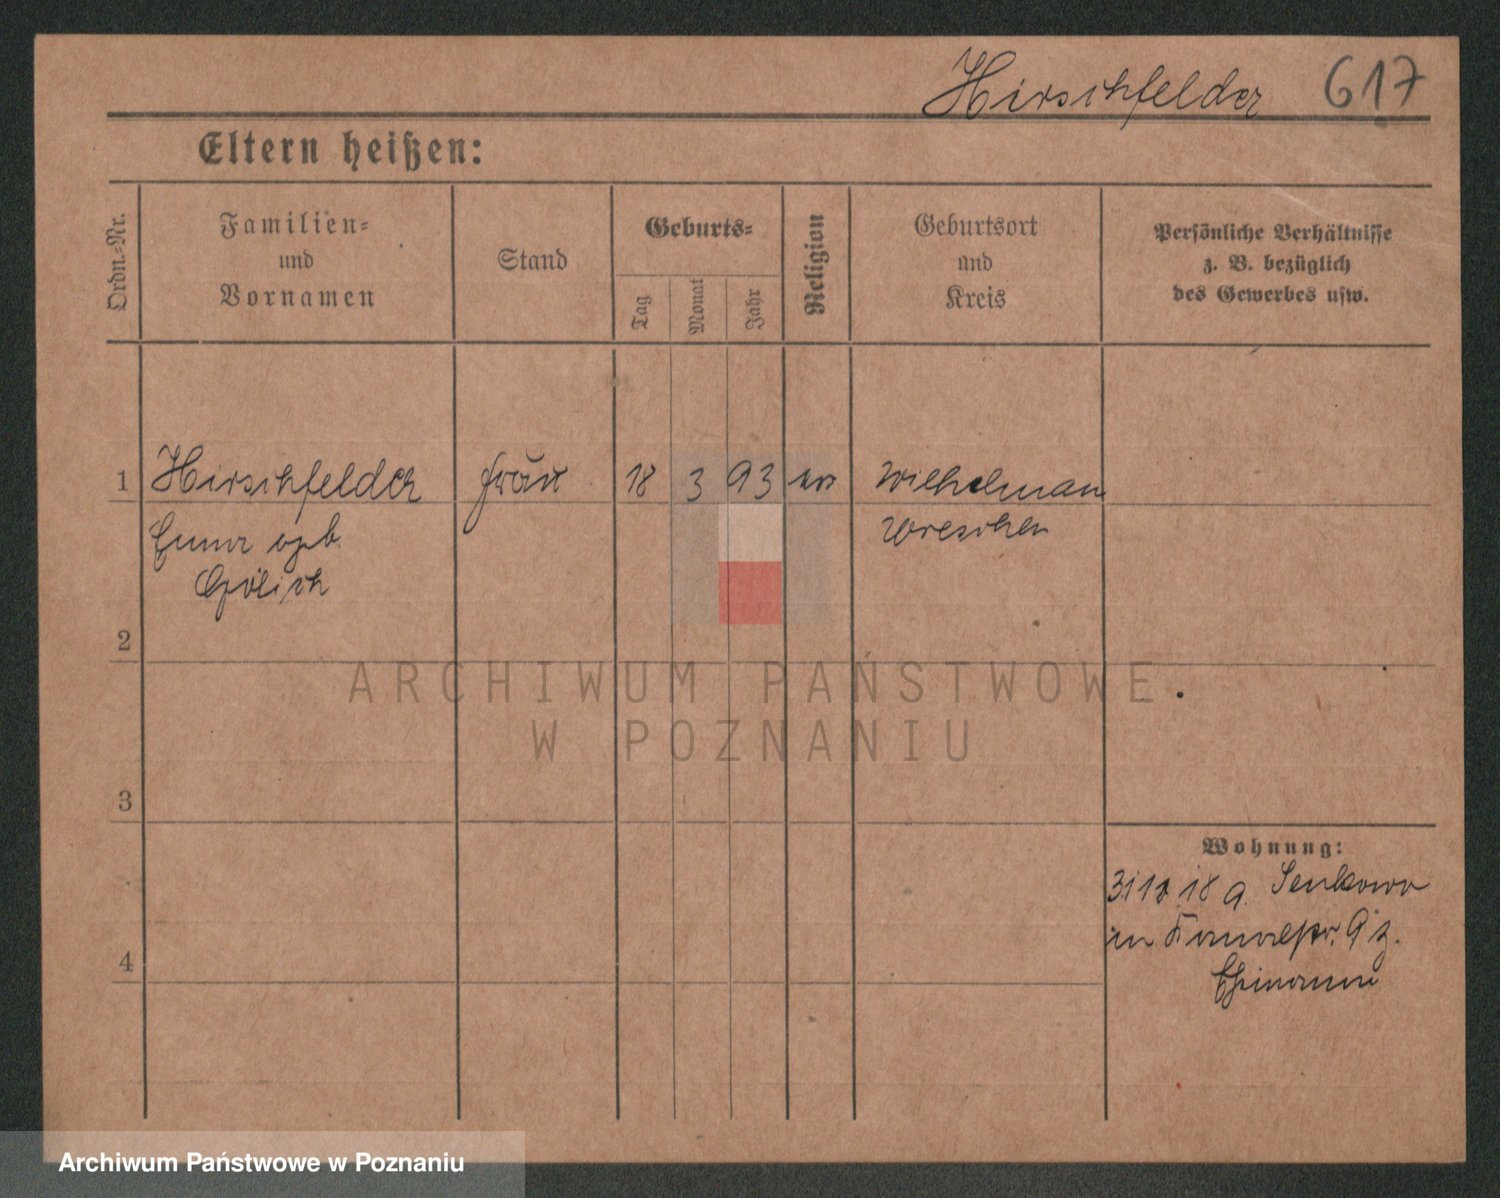 Hirschfelder 617
Eltern heißen:
Ordn.-Nr.
Familien-
und
Vornamen
Stand
Geburts-
Tag
Monat
Jahr
Religion
Geburtsort
und
Kreis
Persönliche Verhältnisse
z. B. bezüglich
des Gewerbes usw.
1 Hirschfelder Frau 18 3 93 Wilhelmsau
Emma geb. Wreschen
2
3
4
Wohnung:
18 a. Senkowo
in 9 z.
Ehemann
ARCHIWUM PAŃSTWOWE
W POZNANIU
Archiwum Państwowe w Poznaniu